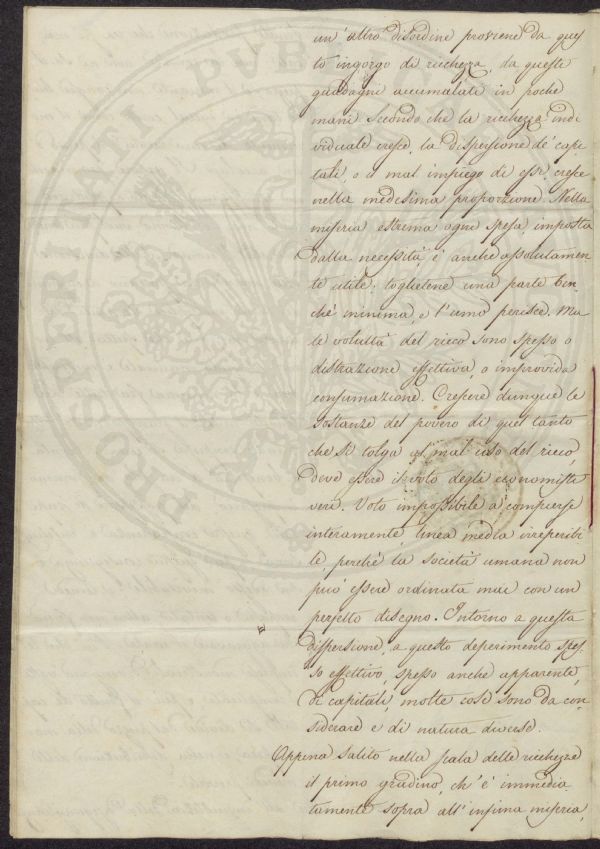 un' altro disordine proviene da ques
to ingorgo di ricchezza, da questi
guadagni accumulati in poche
mani. Secondo che la ricchezza indi
viduale cresce, la dispersione de' capi
tali, o il mal impiego di essi, cresce
nella medesima proporzione. Nella
miseria estrema ogni spesa, imposta
dalla necessità, è anche assolutamen
te utile: toglietene una parte ben
chè minima, e l'uomo perisce. Ma
le voluttà del ricco sono spesso o
distrazione effettiva, o improvida
consumazione. Crescere dunque le
sostanze del povero di quel tanto
che si tolga al mal uso del ricco,
deve essere il voto degli economisti
veri. Voto impossibile a compiersi
interamente, linea media irreperibi
le, perchè la società umana non
può essere ordinata mai con un
perfetto disegno. Intorno a questa
dispersione, a questo deperimento spes
so effettivo, spesso anche apparente,
di capitali, molte cose sono da con
siderare e di natura diverse.
Appena salito nella scala delle ricchezze
il primo gradino, ch' è immedia
tamente sopra all' infima miseria,
PROSPERITATI PUBLICAE